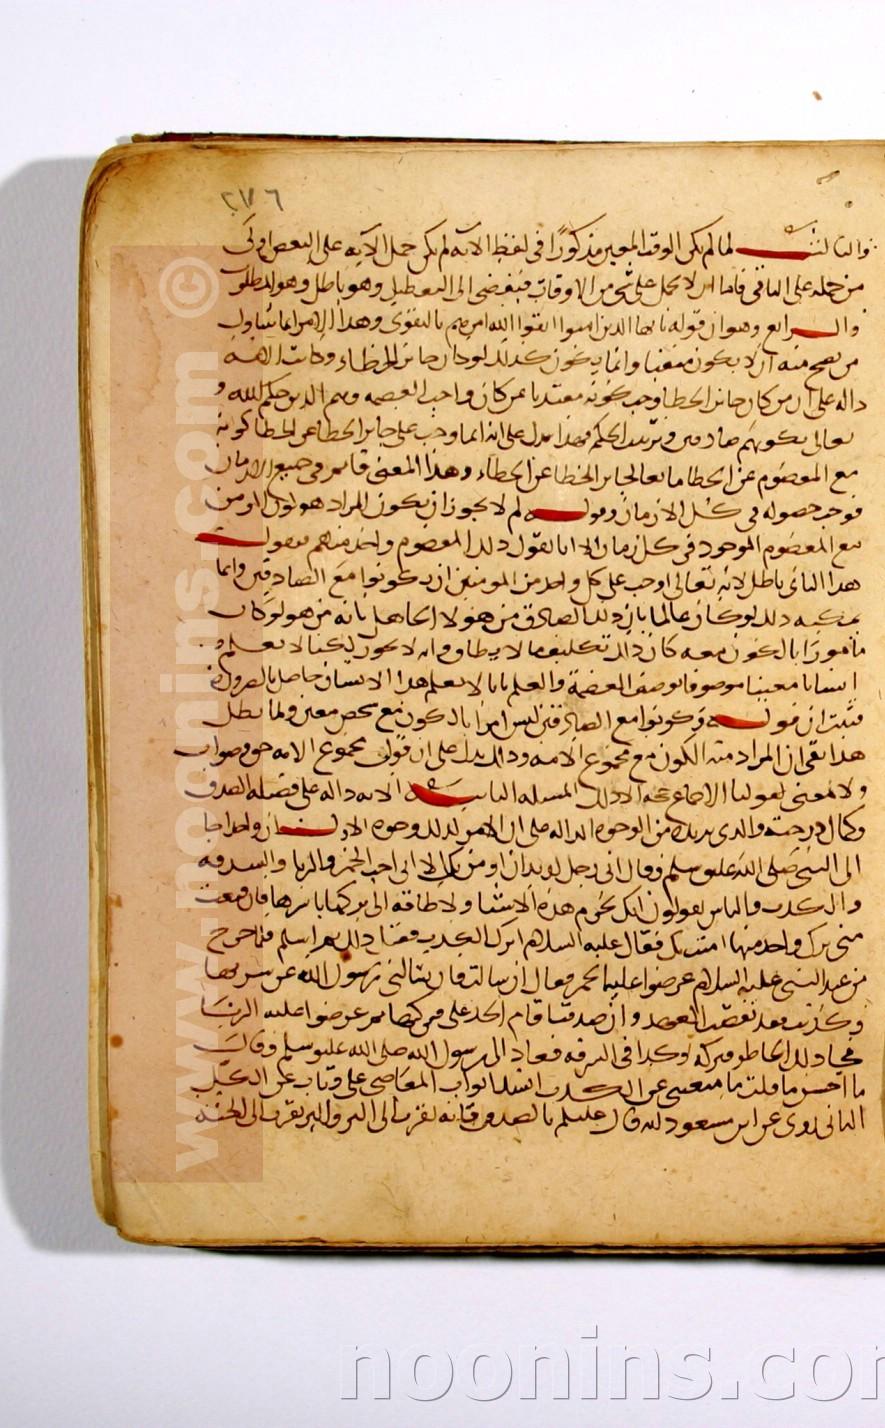 ٢٧٦
والثالث لما لم يكن الوقت المعين مذكورا في لفظ الآية لم يكن حمل الآية على البعض اولى
من حمله على الباقي فاما ان لا يحمل على شيء من الاوقات فيفضي الى التعطيل وهو باطل وهو المطلوب
والرابع وهو ان قوله يا ايها الذين امنوا اتقوا الله امرهم بالتقوى وهذا الامر انما يتناول
من يصح منه ان لا يكون متقيا وانما يكون كذلك لو كان جائز الخطاء وكانت الاية
دالة على ان من كان جائز الخطا وجب كونه مقتديا بمن كان واجب العصمة وهم الذين حكم الله
تعالى بكونهم صادقين وترتيب الحكم فهذا يدل على انه انما وجب على جائز الخطا كونه
مع المعصوم عن الخطا مانعا لجائز الخطا عن الخطاء وهذا المعنى قائم في جميع الازمان
فوجب حصوله في كل الازمان وقوله لم لا يجوز ان يكون المراد هو كون المؤمن
مع المعصوم الموجود في كل زمان الا انا نقول ذلك المعصوم واحد منهم فنقول
هذا الثاني باطل لانه تعالى اوجب على كل واحد من المومنين ان يكونوا مع الصادقين وانما
يمكنه ذلك لو كان عالما بان ذلك الصادق من هو لا الجاهل بانه من هو لو كان
مامورا بالكون معه كان ذلك تكليف ما لا يطاق وانه لا يجوز لكنا لا نعلم
انسانا معينا موصوفا بوصف العصمة والعلم بانا لا نعلم هذا الانسان حاصل بالضرورة
فثبت ان قوله وكونوا مع الصادقين ليس امرا بالكون مع شخص معين ولما بطل
هذا بقي ان المراد منه الكون مع مجموع الامة وذلك يدل على ان قول مجموع الامة حق وصواب
ولا معنى لقولنا الاجماع حجة الا ذلك المسئلة الثانية الاية دالة على فضيلة الصدق
وكمال درجته والذي يؤيده من الوجوه الدالة على ان الامر كذلك وجوه الاول ان واحدا جا
الى النبي صلى الله عليه وسلم وقال اني رجل اريد ان اومن بك الا اني احب الخمر والزنا والسرقة
والكذب والناس يقولون انك تحرم هذه الاشيا ولا طاقة لي بتركها باسرها فان قنعت
مني بترك واحد منها امنت بك فقال عليه السلام اترك الكذب فقبل ذلك ثم اسلم فلما خرج
من عند النبي عليه السلام عرضوا عليه الخمر فقال ان سالني رسول الله عن شربها
وكذبت فقد نقضت العهد وان صدقت اقام الحد علي فتركها ثم عرضوا عليه الزنا
فجا ذلك الخاطر فتركه وكذا في السرقة فعاد الى رسول الله صلى الله عليه وسلم وقال
ما احسن ما قلت ما منعتني عن الكذب انسدت ابواب المعاصي علي وتاب عن الكل
الثاني روي عن ابن مسعود انه قال عليكم بالصدق فانه يقرب الى البر والبر يقرب الى الجنة
www.noonins.com ©
noonins.com